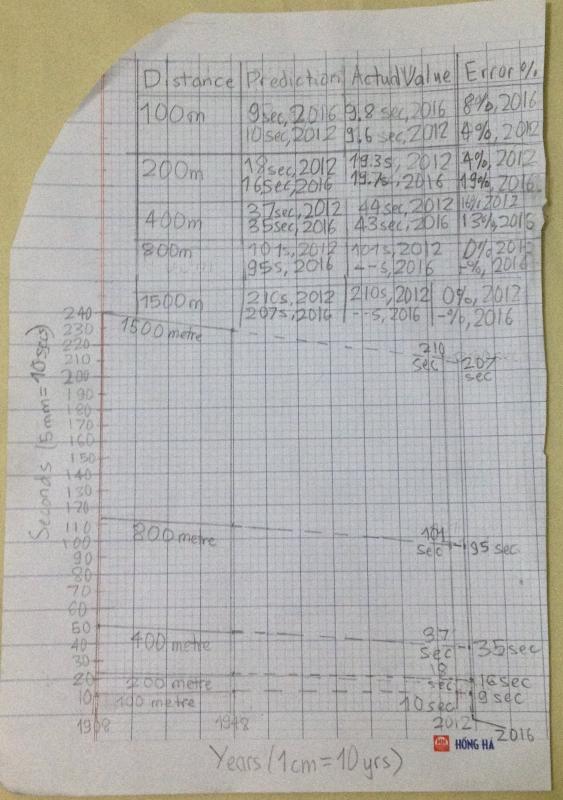 Distance Prediction Actual Value Error %
100m 9sec, 2016 9.8 sec, 2016 8%, 2016
10sec, 2012 9.6 sec, 2012 4%, 2012
200m 18sec, 2012 19.3s, 2012 4%, 2012
16sec, 2016 19.7s, 2016 19%, 2016
400m 37sec, 2012 44sec, 2012 16%, 2012
35sec, 2016 43sec, 2016 13%, 2016
800m 101s, 2012 101s, 2012 0%, 2012
95s, 2016 --s, 2016 -%, 2016
1500m 210s, 2012 210s, 2012 0%, 2012
207s, 2016 --s, 2016 -%, 2016
Seconds (5mm = 10secs)
240
230 1500 metre
220 210
210 sec 207
200 sec
190
180
170
160
150
140
130
120
110
100 800 metre 101 sec 95 sec
90
80
70
60
50
40 400 metre 37 sec 35sec
30
20 200 metre 18 sec 16 sec
10 100 metre 10sec 9 sec
1908 1948 2012 2016
HỒNG HÀ
Years (1cm = 10yrs)